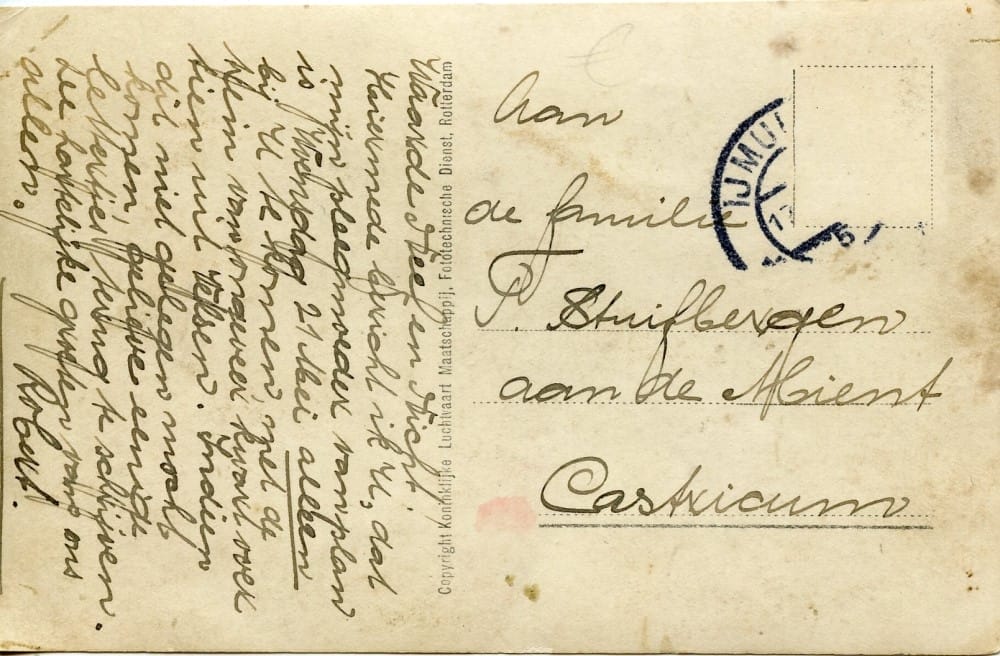 Waarde Neef en Nicht
Hiermede bericht ik U, dat
mijn pleegmoeder van plan
is Woensdag 21 Mei alleen
bij U te komen, met de
trein van ongeveer kwart voor
tien uit Velsen. Indien
dit niet gelegen mocht
komen, gelieve eenige
lettertjes terug te schrijven.
Zee hartelijke groeten van ons
allen,
Robert.
Copyright Koninklijke Luchtvaart Maatschappij, Fototechnische Dienst, Rotterdam
Aan
de familie
P. Stuifbergen
aan de Mient
Castricum
IJMUI
17
5